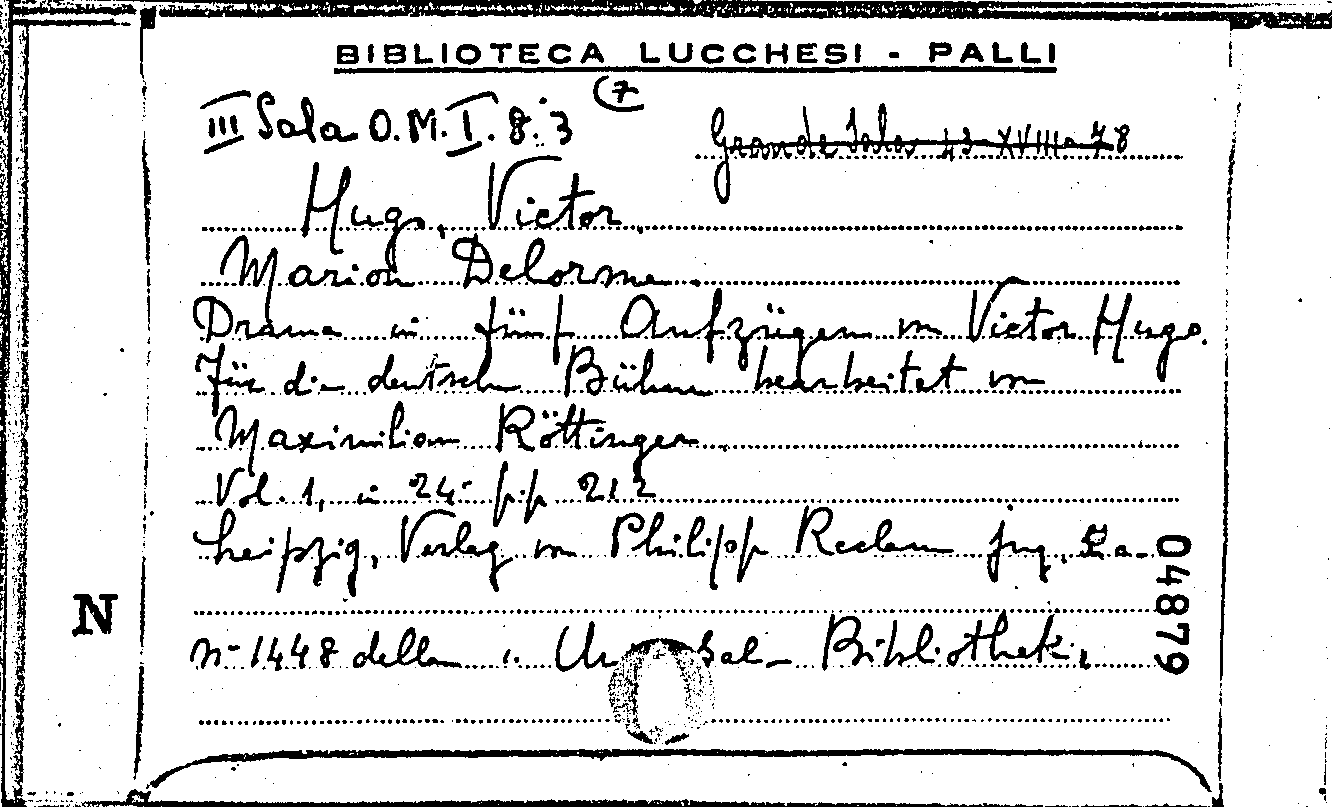 BIBLIOTECA LUCCHESI - PALLI
III Sala O.M.I.8.3 (7
Grande Sala 43-XVIII-78
Hugo, Victor
Marion Delorme
Drama in fünf Aufzügen von Victor Hugo.
Für die deutschen Bühnen bearbeitet von
Maximilian Röttinger
Vol. 1, in 24° p.p. 212
Leipzig, Verlag von Philipp Reclam jng.
nº 1448 della Bibliothek,
04879
N